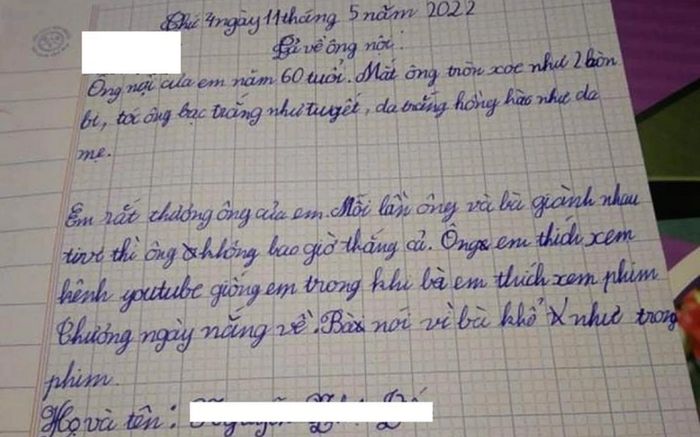 Thứ 4 ngày 11 tháng 5 năm 2022
Tả về ông nội:
Ông nội của em năm 60 tuổi. Mắt ông tròn xoe như 2 hòn
bi, tóc ông bạc trắng như tuyết, da trắng hồng hào như da
mẹ.
Em rất thương ông của em. Mỗi lần ông và bà giành nhau
tivi thì ông không bao giờ thắng cả. Ông em thích xem
kênh youtube giống em trong khi bà em thích xem phim
Thương ngày nắng về. Bà nói vì bà khổ như trong
phim.
Họ và tên: